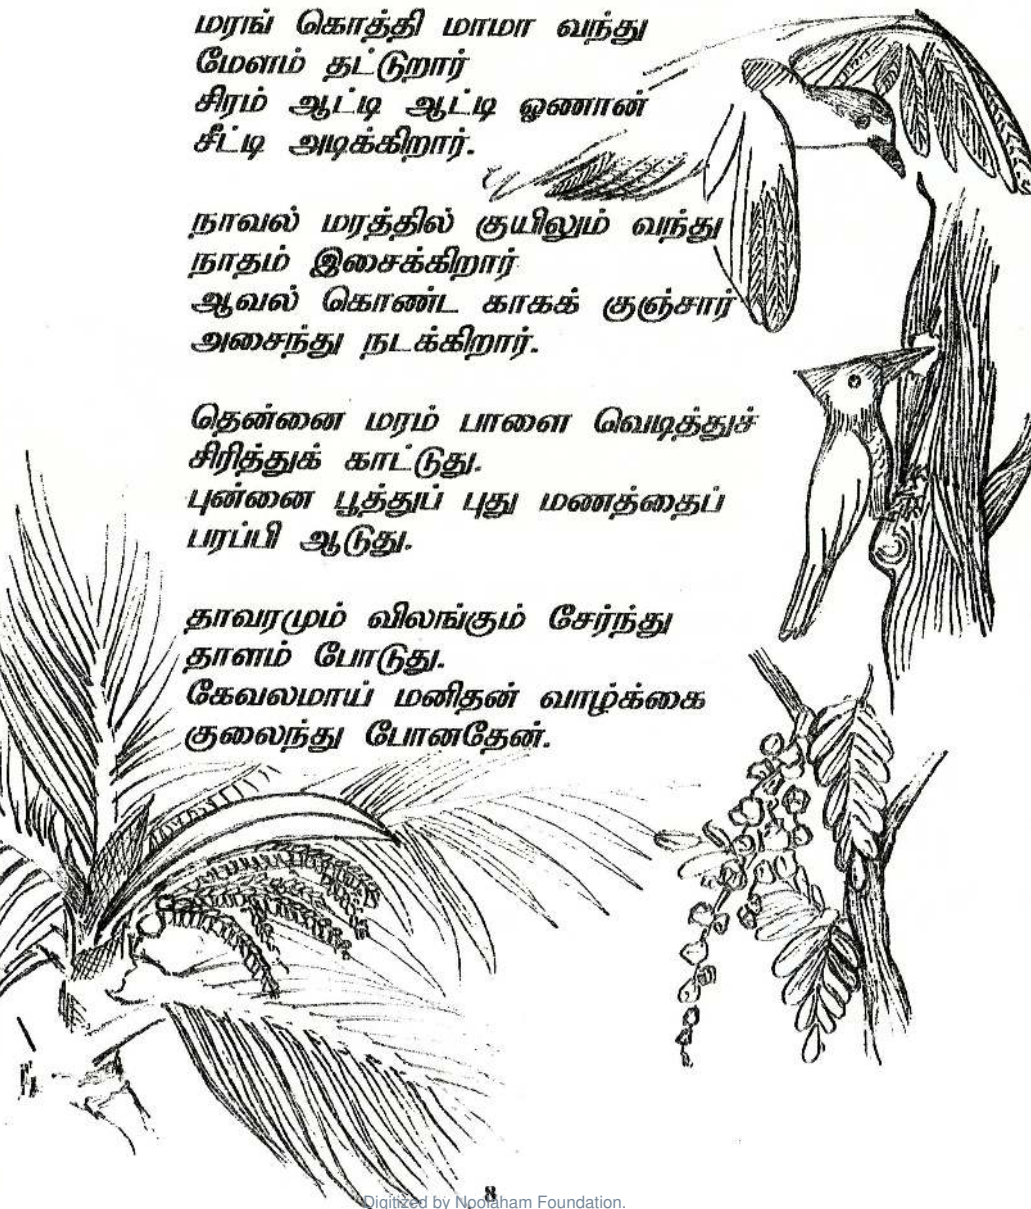 மரங் கொத்தி மாமா வந்து
மேளம் தட்டுறார்
சிரம் ஆட்டி ஆட்டி ஓணான்
சீட்டி அடிக்கிறார்.
நாவல் மரத்தில் குயிலும் வந்து
நாதம் இசைக்கிறார்
ஆவல் கொண்ட காகக் குஞ்சார்
அசைந்து நடக்கிறார்.
தென்னை மரம் பாளை வெடித்துச்
சிரித்துக் காட்டுது.
புன்னை பூத்துப் புது மணத்தைப்
பரப்பி ஆடுது.
தாவரமும் விலங்கும் சேர்ந்து
தாளம் போடுது.
கேவலமாய் மனிதன் வாழ்க்கை
குலைந்து போனதேன்.
8
Digitized by Noolaham Foundation.